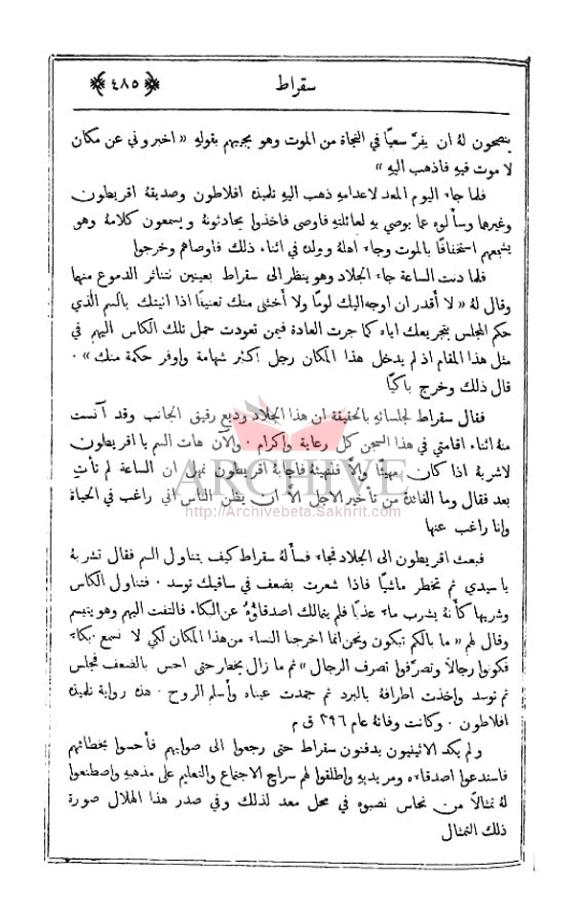 سقراط
﴿٤٨٥﴾
ينصحون لهُ ان يفرَّ سعيًا في النجاة من الموت وهو يجيبهم بقولهِ « اخبروني عن مكان
لا موت فيهِ فاذهب اليهِ »
فلما جاءَ اليوم المعد لاعدامهِ ذهب اليهِ تلميذهُ افلاطون وصديقهُ اقريطون
وغيرها وسألوه عما يوصي بهِ لعائلتهِ فاوصى فاخذوا يحادثونهُ ويسمعون كلامهُ وهو
يشجعهم استخفافًا بالموت وجاءَ اهلهُ وولدهُ في اثناء ذلك فاوصاهم وخرجوا
فلما دنت الساعة جاءَ الجلاد وهو ينظر الى سقراط بعينين تتناثر الدموع منها
وقال لهُ « لا أقدر ان اوجه اليك لومًا ولا أخشى منك تعنيفًا اذا اتيتك بالسم الذي
حكم المجلس بتجريعك اياه كما جرت العادة فيمن تعودت حمل تلك الكاس اليهم في
مثل هذا المقام اذ لم يدخل هذا المكان رجل اكثر شهامة واوفر حكمة منك » .
قال ذلك وخرج باكيًا
فقال سقراط لجلسائهِ بالحقيقة ان هذا الجلاد وديع رفيق الجانب وقد آنست
منهُ اثناء اقامتي في هذا السجن كل رعاية وإكرام . والآن هات السم يا اقريطون
لاشربهُ اذا كان مهيئًا والاَّ فتهيئهُ فاجابهُ اقريطون تمهل ان الساعة لم تأتِ
بعد فقال وما الفائدة من تأخير الاجل الاَّ ان يظن الناس اني راغب في الحياة
وانا راغب عنها
ARCHIVE
http://Archivebeta.Sakhrit.com
فبعث اقريطون الى الجلاد فجاءَ فسألهُ سقراط كيف يتناول السم فقال تشربهُ
يا سيدي ثم تخطر ماشيًا فاذا شعرت بضعف في ساقيك توسد . فتناول الكاس
وشربها كأنهُ يشرب ماءً عذبًا فلم يتمالك اصدقاؤهُ عن البكاء فالتفت اليهم وهو يتبسم
وقال لهم « ما بالكم تبكون ونحن انما اخرجنا النساءَ من هذا المكان لكي لا نسمع بكاءً
فكونوا رجالاً وتصرَّفوا تصرف الرجال » ثم ما زال يخطر حتى احس بالضعف فجلس
ثم توسد واخذت اطرافهُ بالبرد ثم جمدت عيناه وأسلم الروح . هذه رواية تلميذهِ
افلاطون . وكانت وفاتهُ عام ٣٩٦ ق م
ولم يكد الاثينيون يدفنون سقراط حتى رجعوا الى صوابهم فأحسوا بخطائهم
فاستدعوا اصدقاءه ومريديهِ واطلقوا لهم سراح الاجتماع والتعليم على مذهبهِ واصطنعوا
لهُ تمثالاً من نحاس نصبوه في محل معد لذلك وفي صدر هذا الهلال صورة
ذلك التمثال